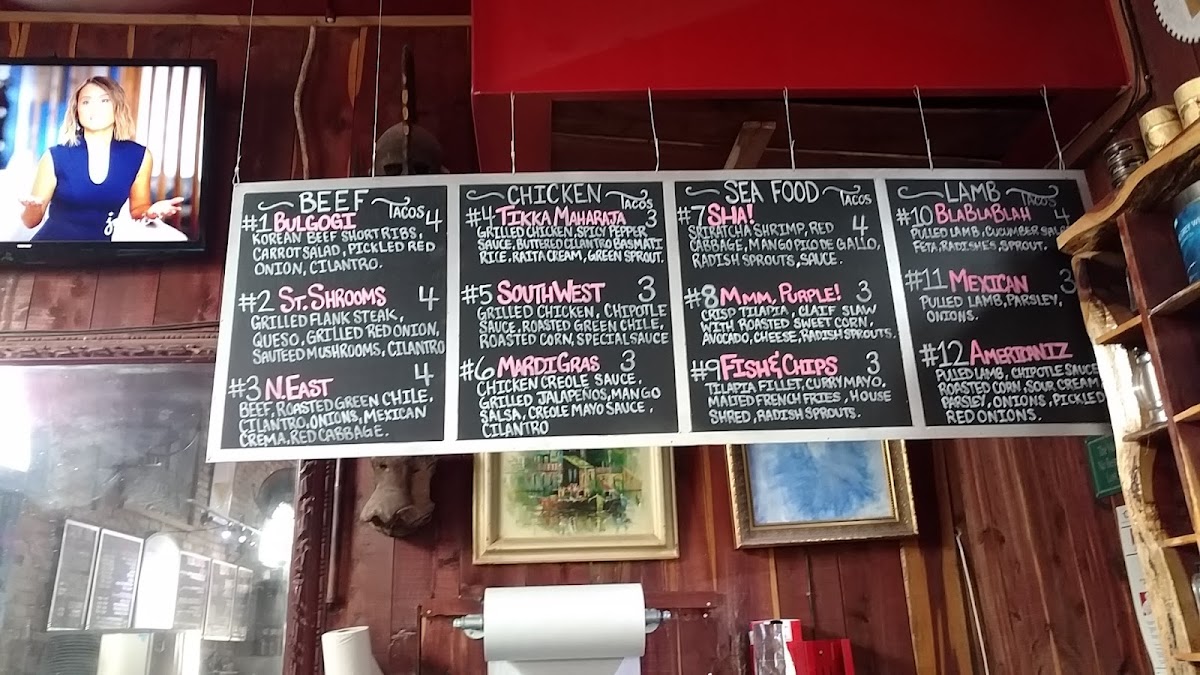 BEEF TACOS
#1 BULGOGI 4
KOREAN BEEF SHORT RIBS,
CARROT SALAD, PICKLED RED
ONION, CILANTRO.
#2 ST. SHROOMS 4
GRILLED FLANK STEAK,
QUESO, GRILLED RED ONION,
SAUTEED MUSHROOMS, CILANTRO
#3 N. EAST 4
BEEF, ROASTED GREEN CHILE,
CILANTRO, ONIONS, MEXICAN
CREMA, RED CABBAGE.
CHICKEN TACOS
#4 TIKKA MAHARAJA 3
GRILLED CHICKEN, SPICY PEPPER
SAUCE, BUTTERED CILANTRO BASMATI
RICE, RAITA CREAM, GREEN SPROUT.
#5 SOUTHWEST 3
GRILLED CHICKEN, CHIPOTLE
SAUCE, ROASTED GREEN CHILE,
ROASTED CORN, SPECIAL SAUCE
#6 MARDI GRAS 3
CHICKEN CREOLE SAUCE,
GRILLED JALAPEÑOS, MANGO
SALSA, CREOLE MAYO SAUCE,
CILANTRO
SEA FOOD TACOS
#7 SHA! 4
SRIRATCHA SHRIMP, RED
CABBAGE, MANGO PICO DE GALLO,
RADISH SPROUTS, SAUCE.
#8 MMM, PURPLE! 3
CRISP TILAPIA, CLAIF SLAW
WITH ROASTED SWEET CORN,
AVOCADO, CHEESE, RADISH SPROUTS.
#9 FISH & CHIPS 3
TILAPIA FILLET, CURRY MAYO,
MALTED FRENCH FRIES, HOUSE
SHRED, RADISH SPROUTS.
LAMB TACOS
#10 BLABLABLAH 4
PULLED LAMB, CUCUMBER
FETA, RADISHES, SPROUT.
#11 MEXICAN 3
PULLED LAMB, PARSLEY,
ONIONS.
#12 AMERICANIZ
PULLED LAMB, CHIPOTLE SAUCE
ROASTED CORN, SOUR CREAM
PARSLEY, ONIONS, PICKLED
RED ONIONS.